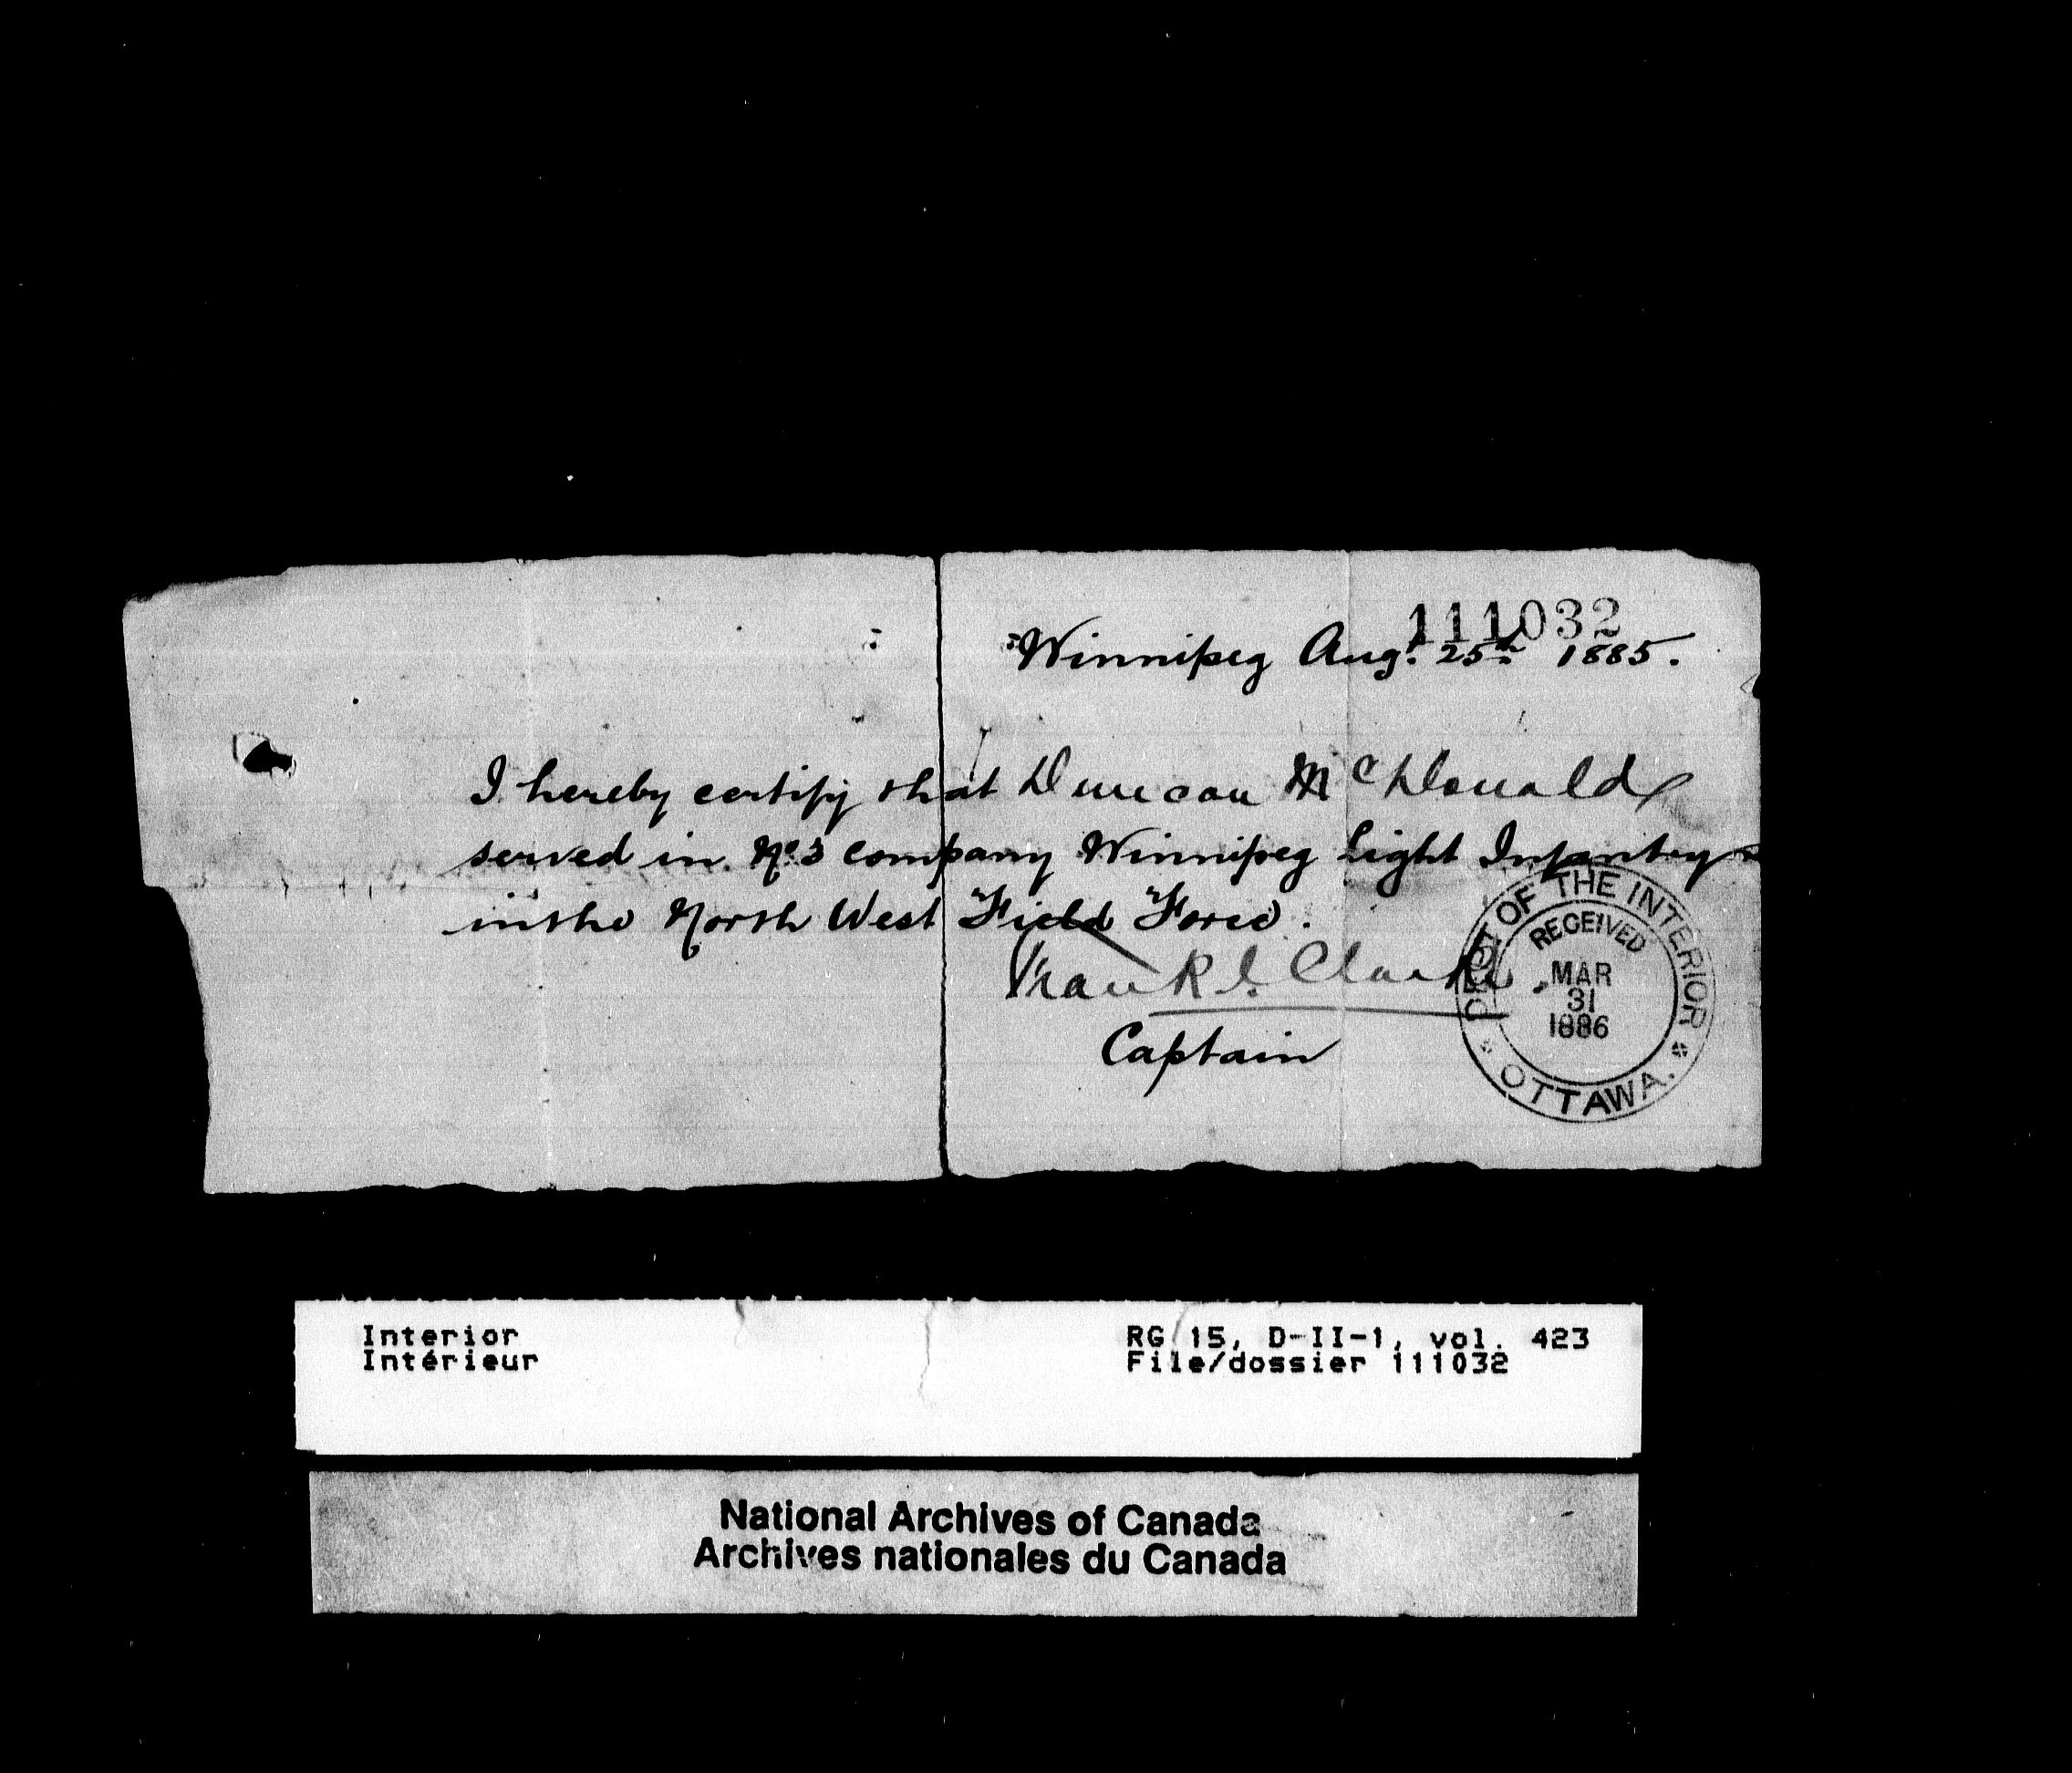 111032
Winnipeg Augt. 25th 1885.
I hereby certify that Duncan McDonald
served in No. 3 Company Winnipeg Light Infantry
in the North West Field Force.
Frank I. Clarke.
Captain
DEPT OF THE INTERIOR
RECEIVED
MAR
31
1886
OTTAWA.
Interior
Intérieur
RG 15, D-II-1, vol. 423
File/dossier 111032
National Archives of Canada
Archives nationales du Canada